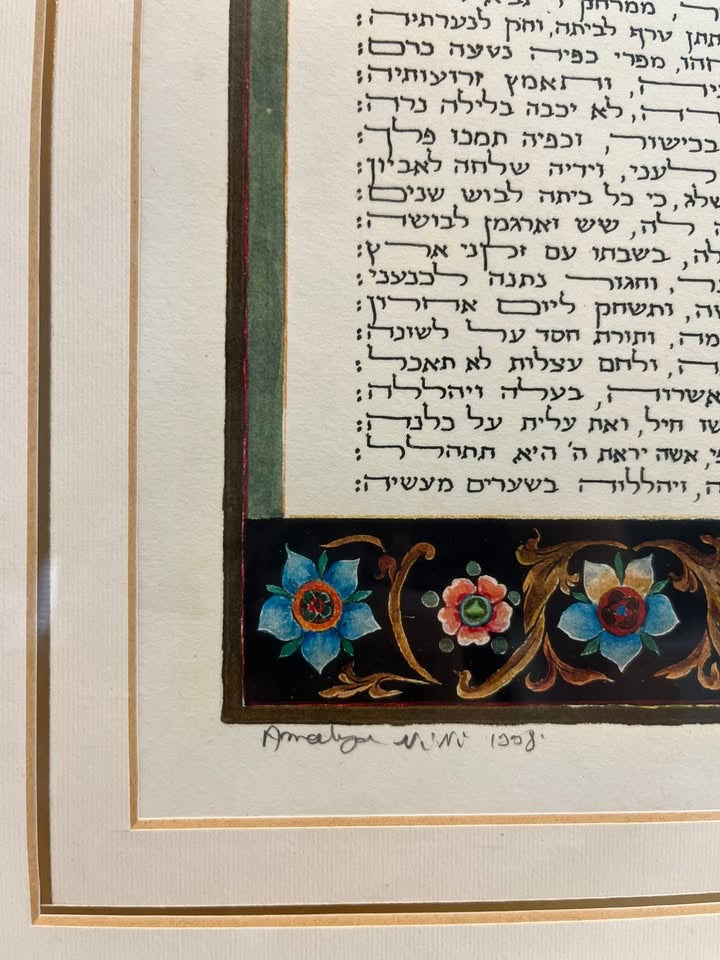 ממרחק
תתן טרף לביתה, וחק לנערתיה:
חהו, מפרי כפיה נטעה כרם:
יה, ותאמץ זרועותיה:
רה, לא יכבה בלילה נרה:
בכישור, וכפיה תמכו פלך:
לעני, וידיה שלחה לאביון:
שלג, כי כל ביתה לבוש שנים:
לה, שש וארגמן לבושה:
לה, בשבתו עם זקני ארץ:
ר, וחגור נתנה לכנעני:
שה, ותשחק ליום אחרון:
מה, ותורת חסד על לשונה:
ה, ולחם עצלות לא תאכל:
אשרוה, בעלה ויהללה:
שו חיל, ואת עלית על כלנה:
פי, אשה יראת ה' היא תתהלל:
ה, ויהללוה בשערים מעשיה:
Amalya 1998.